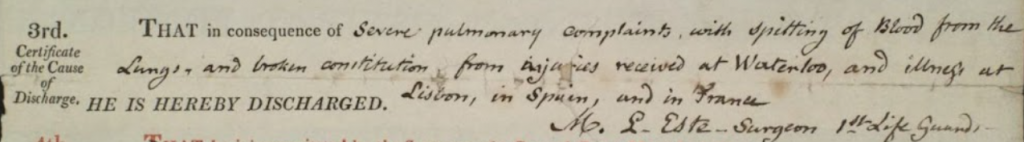 3rd.
Certificate
of the Cause
of
Discharge.
THAT in consequence of Severe pulmonary complaints, with spitting of Blood from the
Lungs, and broken constitution, from injuries received at Waterloo, and illness at
HE IS HEREBY DISCHARGED. Lisbon, in Spain, and in France
M. L- Este - Surgeon 1st Life Guards -